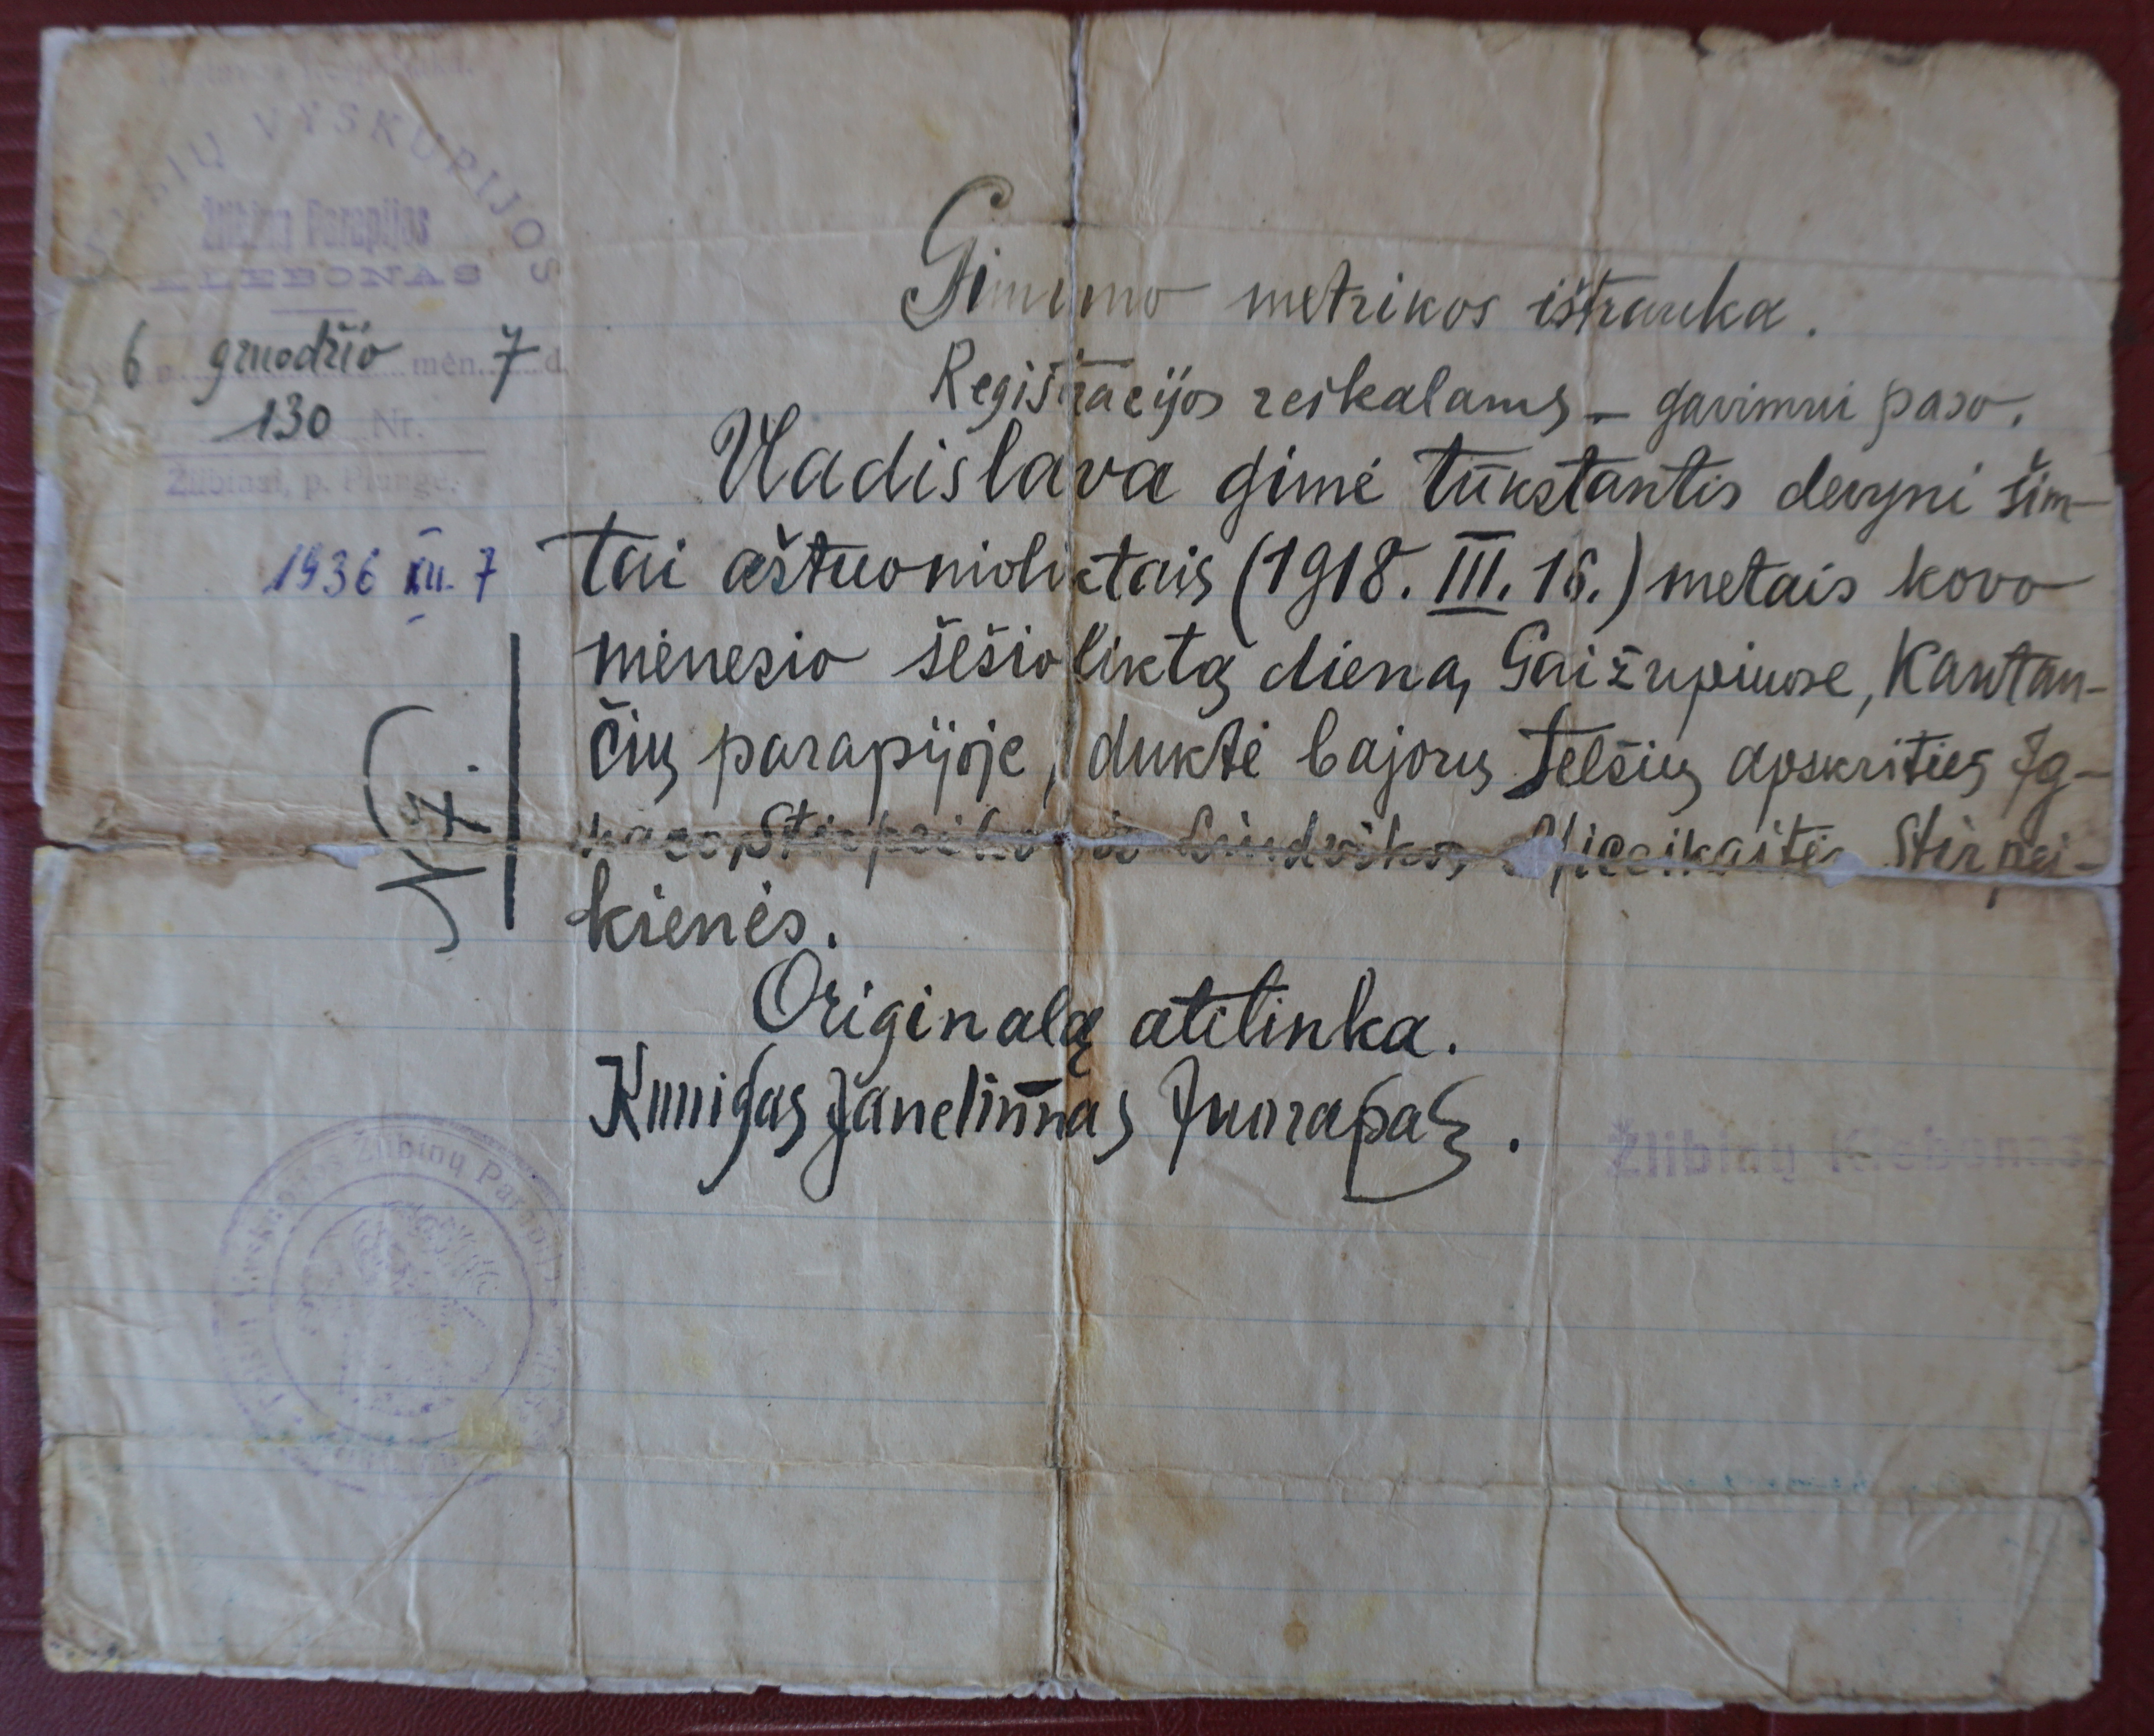 VYSKUPIJOS
Žlibinų Parapijos
KLEBONAS
6 gruodžio mėn. 7 d.
130 Nr.
Žlibinai, p. Plungė.
1936 XII. 7
N 7.
Gimimo metrikos ištrauka.
Registracijos reikalams – gavimui paso.
Vladislava gimė tūkstantis devyni šim-
tai aštuonioliktais (1918. III. 16.) metais kovo
mėnesio šešioliktą dieną, Gaižupiuose, Kantau-
čių parapijoje, duktė bajorų Telšių apskrities Ig-
Stirpei-
kienės.
Originalą atitinka.
Kunigas
Žlibinų Klebonas
Žlibinų